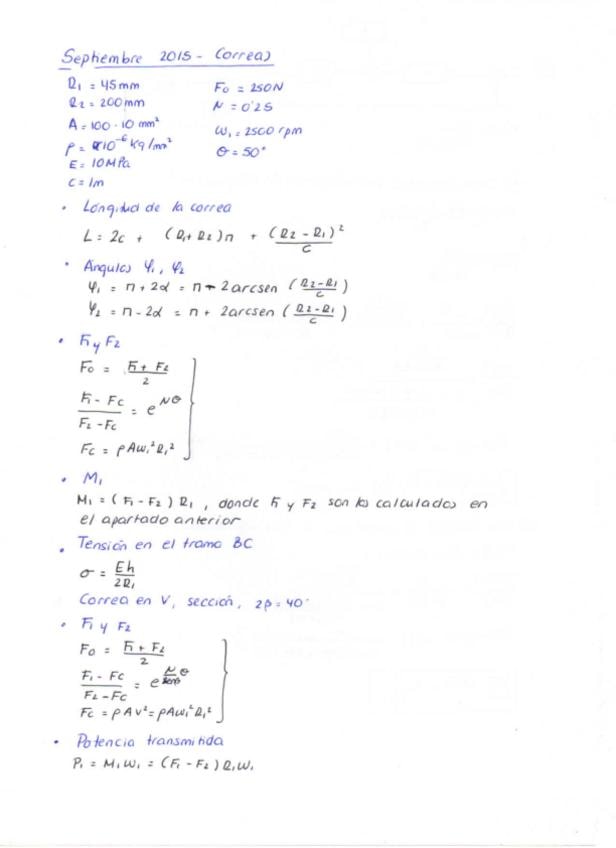 Septiembre 2015 - Correas
R₁ = 45mm F₀ = 250N
R₂ = 200mm N = 0'25
A = 100·10 mm² ω₁ = 2500 rpm
ρ = 10⁻⁶ kg/mm² θ = 50°
E = 10MPa
c = 1m
· Longitud de la correa
L = 2c + (R₁+R₂)π + (R₂ - R₁)²/c
· Ángulos φ₁, φ₂
φ₁ = π + 2α = π - 2arcsen (R₂-R₁/c)
φ₂ = π - 2α = π + 2arcsen (R₂-R₁/c)
· F₁ y F₂
F₀ = F₁ + F₂/2
F₁ - Fc/F₂ - Fc = e^Nθ
Fc = ρAω₁²R₁²
· M₁
M₁ = (F₁ - F₂) R₁, donde F₁ y F₂ son los calculados en
el apartado anterior
· Tensión en el tramo BC
σ = Eh/2R₁
Correa en V, sección, 2β = 40°
· F₁ y F₂
F₀ = F₁ + F₂/2
F₁ - Fc/F₂ - Fc = e^N θ
Fc = ρAv² = ρAω₁²R₁²
· Potencia transmitida
P₁ = M₁ω₁ = (F₁ - F₂) R₁ω₁